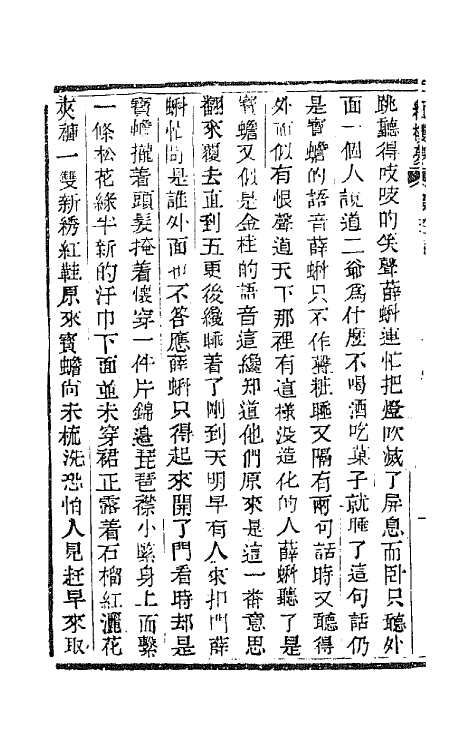 跳聽得吱吱的笑聲薛蝌連忙把燈吹滅了屏息而卧只聽外
面一個人說道二爺爲什麽不喝酒吃菓子就睡了這句話仍
是寶蟾的語音薛蝌只不作聲粧睡又隔有兩句話時又聽得
外面似有恨聲道天下那裡有這樣没造化的人薛蝌聽了是
寶蟾又似是金桂的語音這纔知道他們原來是這一番意思
翻來覆去直到五更後纔睡着了剛到天明早有人來扣門薛
蝌忙問是誰外面也不答應薛蝌只得起來開了門看時却是
寶蟾攏着頭髮掩着懷穿一件片錦邉琵琶襟小緊身上面繫
一條松花綠半新的汗巾下面並未穿裙正露着石榴紅灑花
夾褲一雙新綉紅鞋原來寶蟾尚未梳洗恐怕人見赶早來取